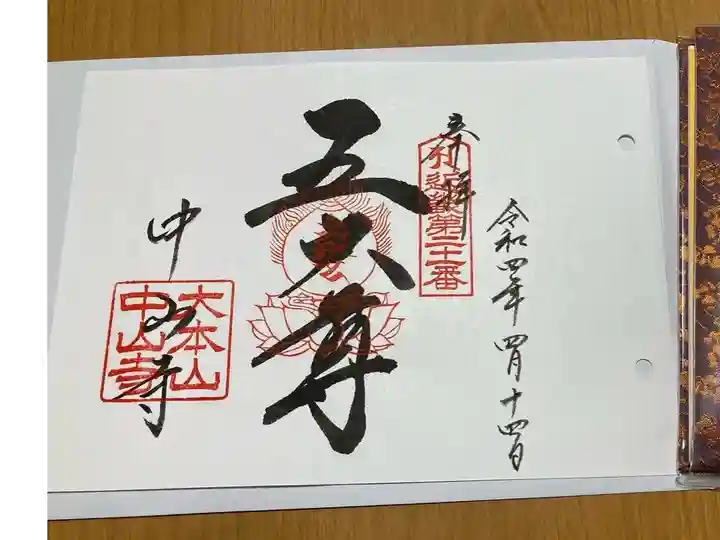 令和四年四月十四日
奉拝
第二十一番
五大尊
中山寺
大本山
中山寺